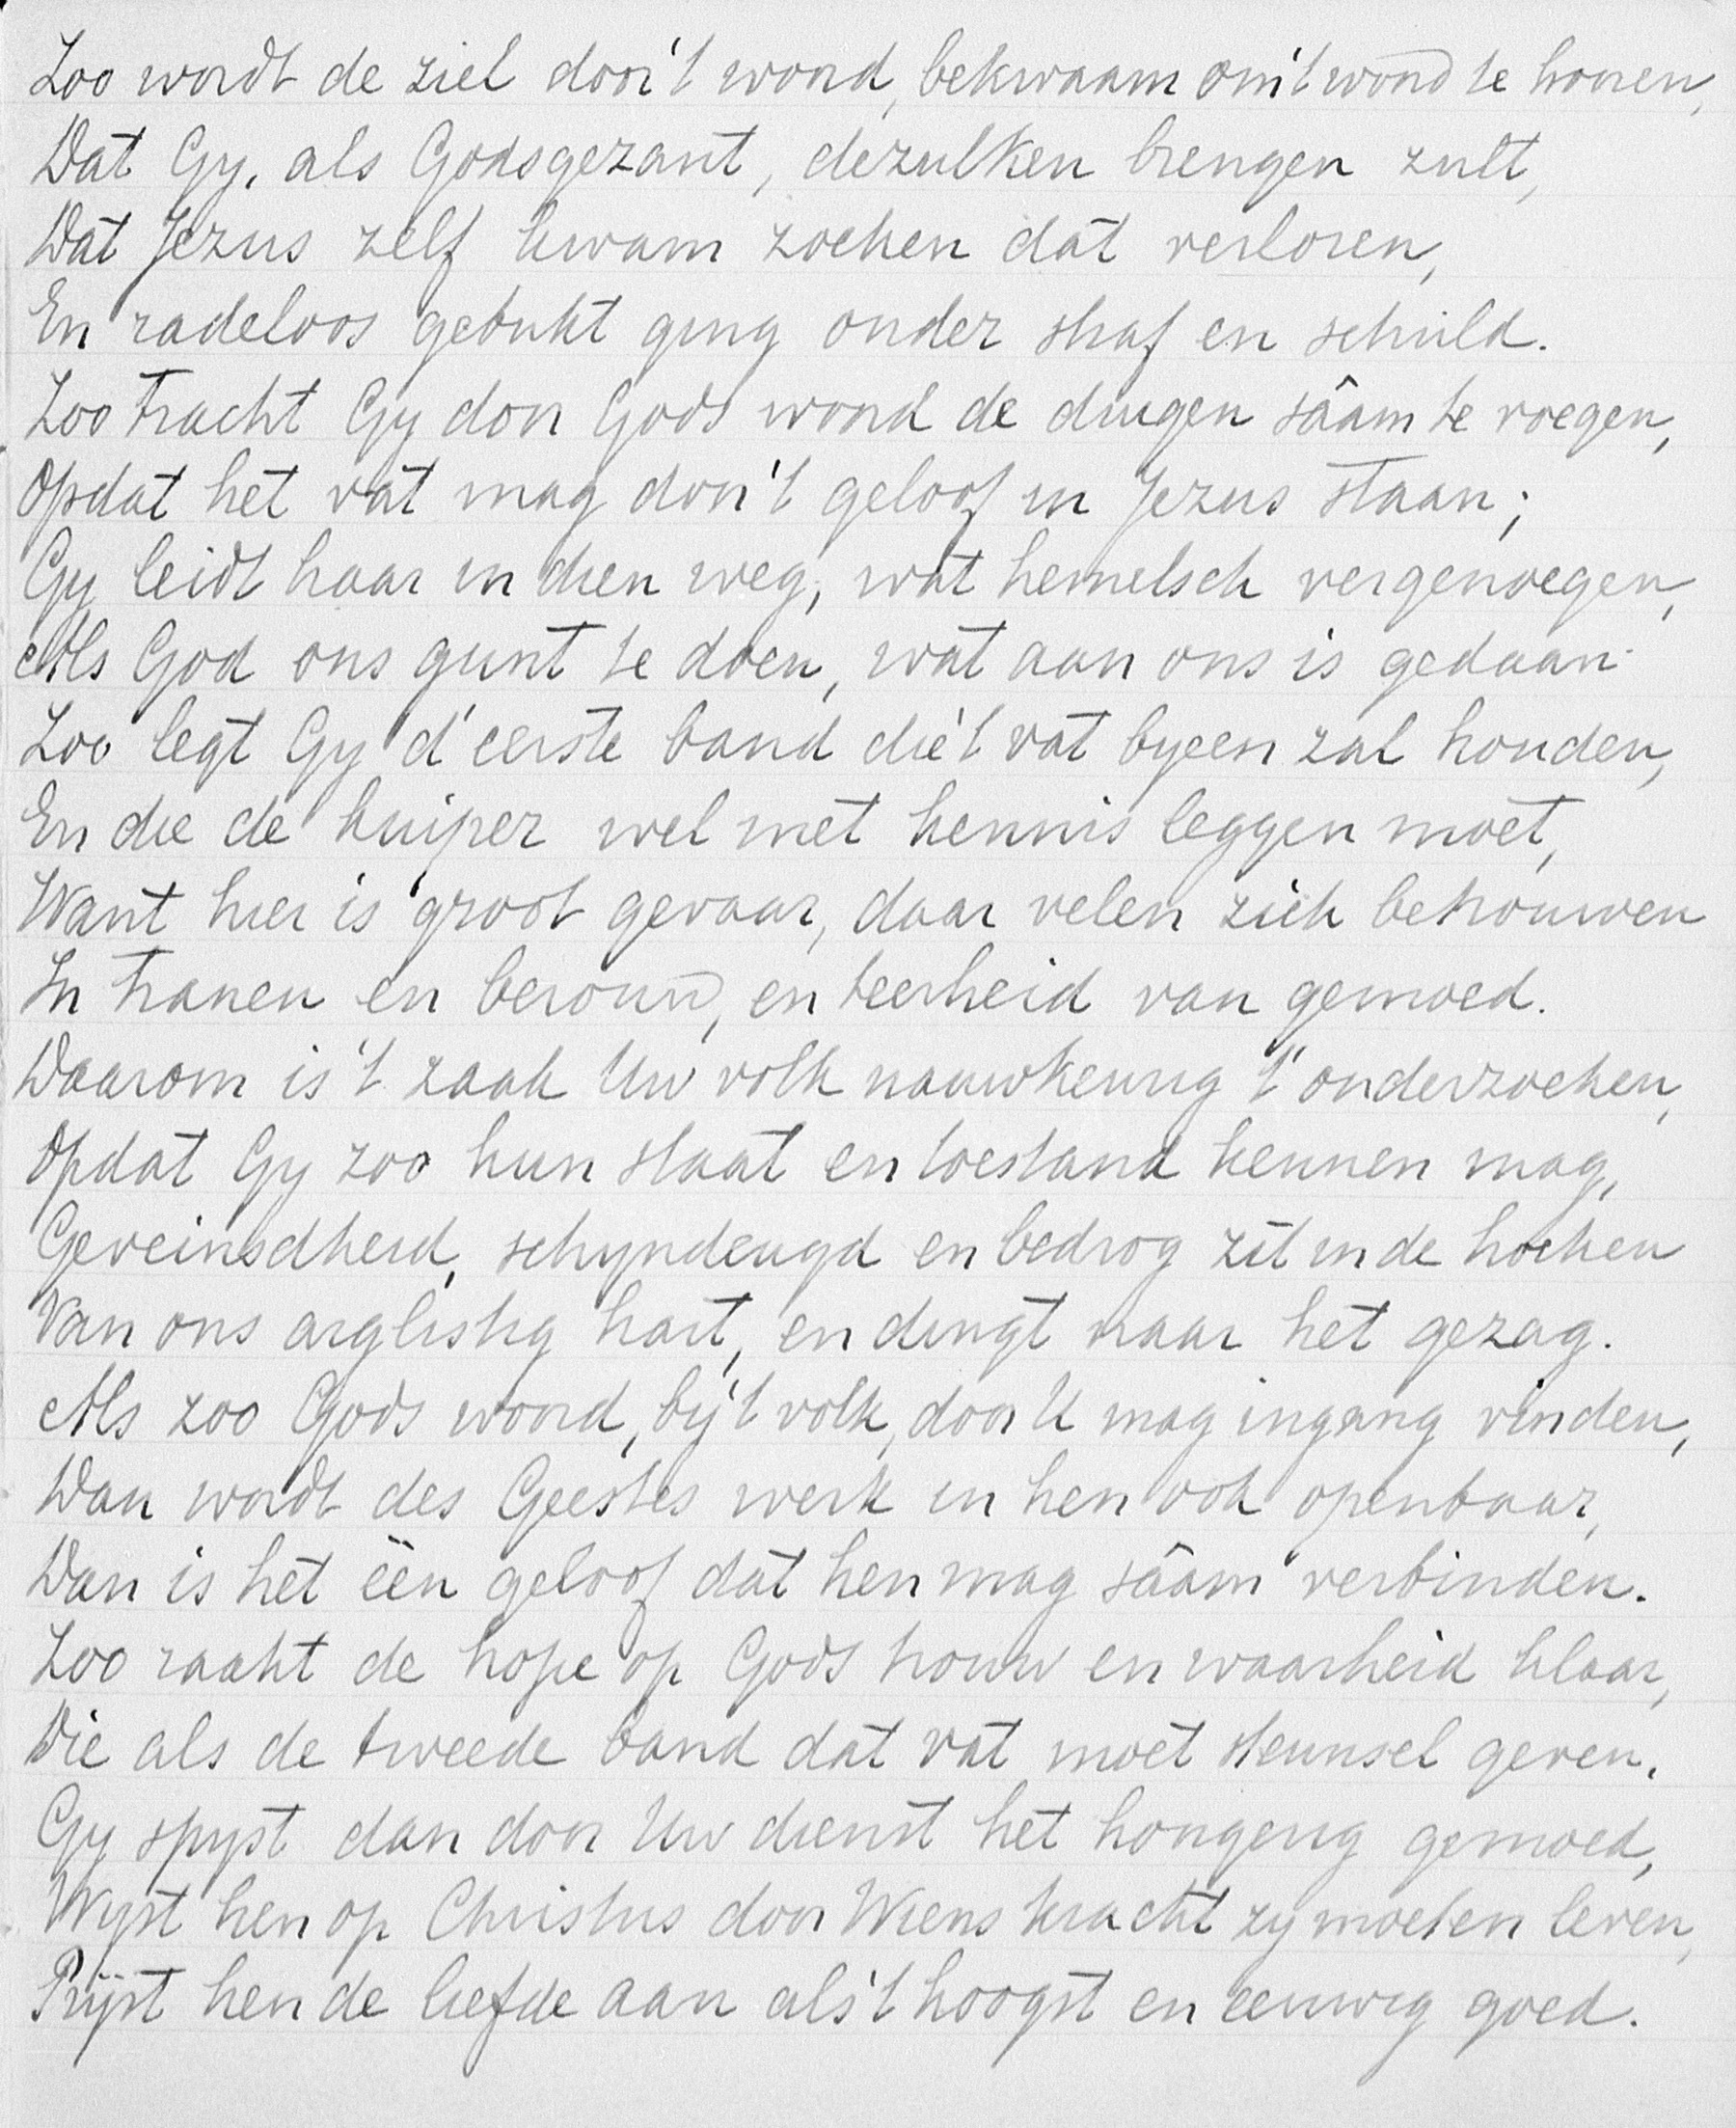 Zoo wordt de ziel door 't woord, bekwaam om 't woord te hooren,
Dat Gy, als Godsgezant, dezulken brengen zult,
Dat Jezus zelf kwam zoeken dat verloren,
En radeloos gebukt ging onder straf en schuld.
Zoo tracht Gy door Gods woord de duigen sâam te voegen,
Opdat het vat mag door 't geloof in Jezus staan;
Gy leidt haar in dien weg, wat hemelsch vergenoegen,
Als God ons gunt te doen, wat aan ons is gedaan.
Zoo legt Gy d' eerste band die 't vat byeen zal houden,
En die de kuiper wel met kennis leggen moet,
Want hier is groot gevaar, daar velen zich betrouwen
In tranen en berouw, en teerheid van gemoed.
Daarom is 't zaak Uw volk nauwkeurig t' onderzoeken,
Opdat Gy zoo hun staat en toestand kennen mag,
Geveinsdheid, schyndeugd en bedrog zit in de hoeken
Van ons arglistig hart, en dingt naar het gezag.
Als zoo Gods woord, by 't volk, door U mag ingang vinden,
Dan wordt des Geestes werk in hen ook openbaar,
Dan is het één geloof dat hen mag sâam verbinden.
Zoo raakt de hope op Gods trouw en waarheid klaar,
Die als de tweede band dat vat moet steunsel geven.
Gy spyst dan door Uw dienst het hongerig gemoed,
Wyst hen op Christus door Wiens kracht zy moeten leven,
Prijst hen de liefde aan als 't hoogst en eeuwig goed.